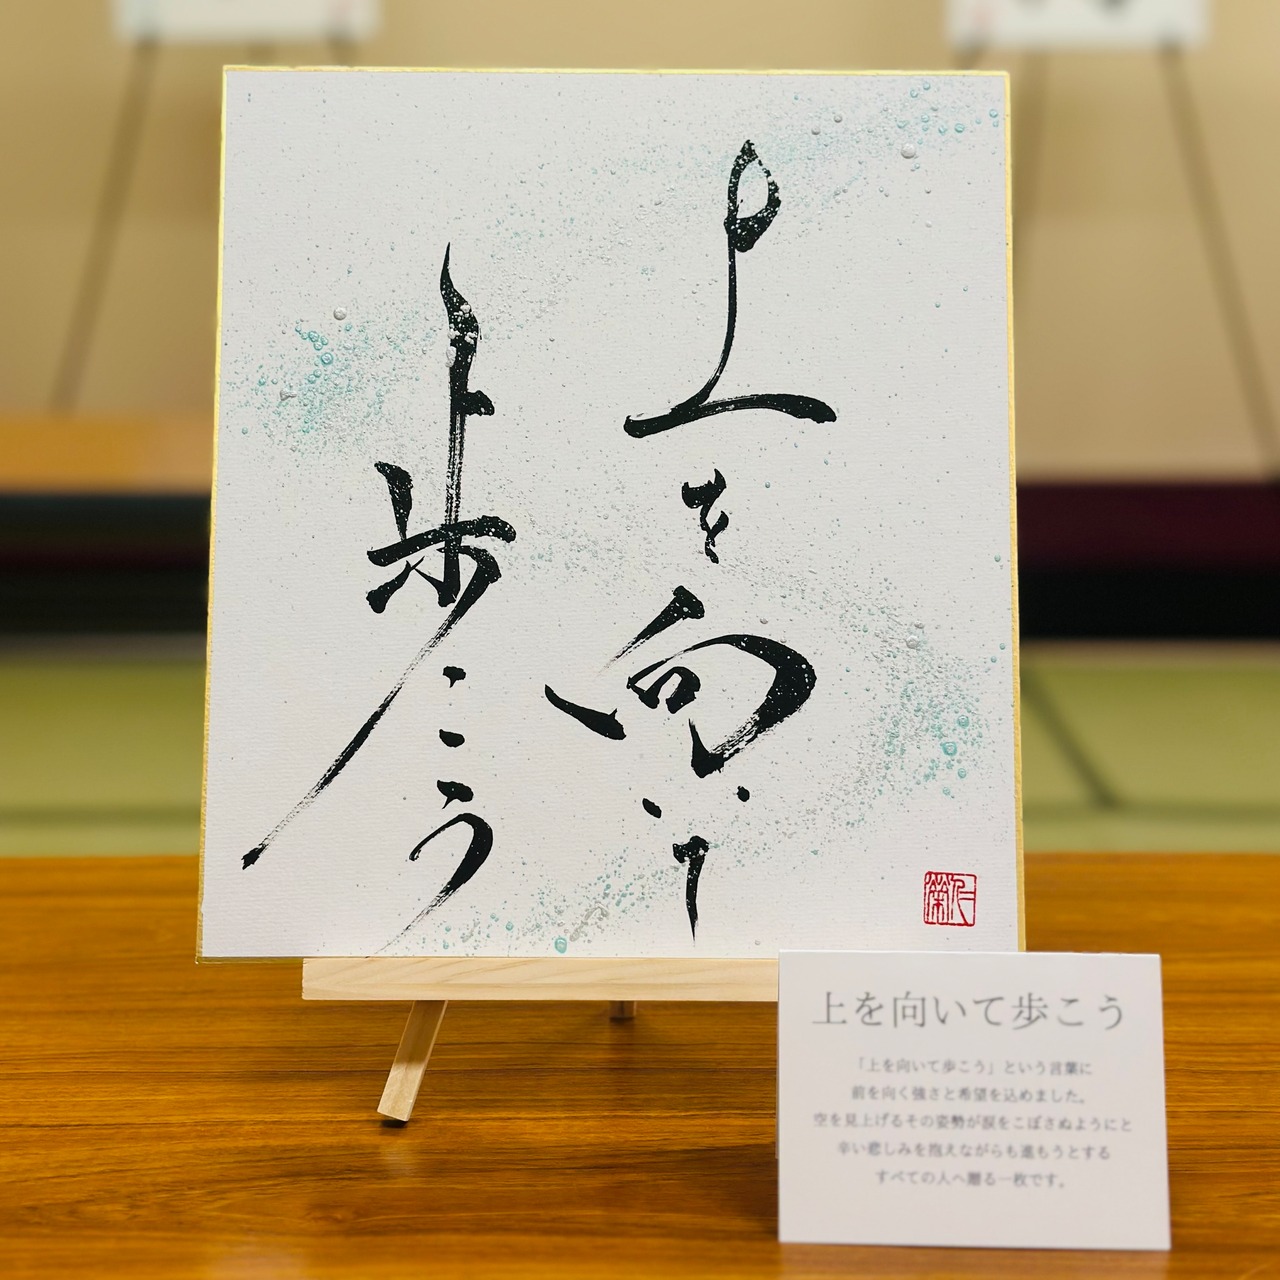 上を向いて
歩こう
上を向いて歩こう
「上を向いて歩こう」という言葉に
前を向く強さと希望を込めました。
空を見上げるその姿勢が涙をこぼさぬようにと
辛い悲しみを抱えながらも進もうとする
すべての人へ贈る一枚です。